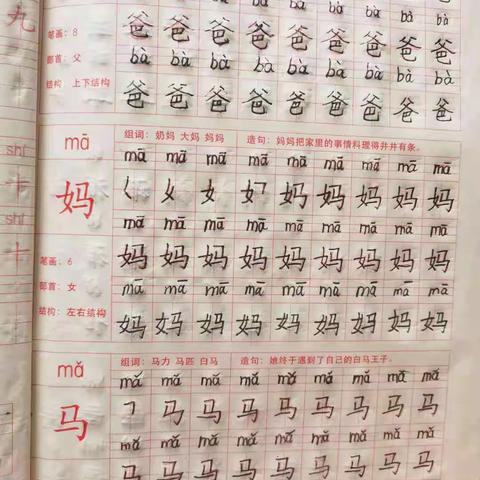 bà bà bà bà bà bà bà bà
笔画：8 爸 爸 爸 爸 爸 爸 爸 爸 爸
部首：父 bà bà bà bà bà bà bà bà bà
结构：上下结构 爸 爸 爸 爸 爸 爸 爸 爸 爸
mā 组词：奶妈 大妈 妈妈 造句：妈妈把家里的事情料理得井井有条。
mā mā mā mā mā mā mā mā mā
妈 女 女 妈 妈 妈 妈 妈
mā mā mā mā mā mā mā mā mā
笔画：6 妈 妈 妈 妈 妈 妈 妈 妈 妈
部首：女 mā mā mā mā mā mā mā mā mā
结构：左右结构 妈 妈 妈 妈 妈 妈 妈 妈 妈
mǎ 组词：马力 马匹 白马 造句：她终于遇到了自己的白马王子。
mǎ mǎ mǎ mǎ mǎ mǎ mǎ mǎ mǎ
马 马 马 马 马 马 马 马 马
mǎ mǎ mǎ mǎ mǎ mǎ mǎ mǎ mǎ
马 马 马 马 马 马 马 马 马